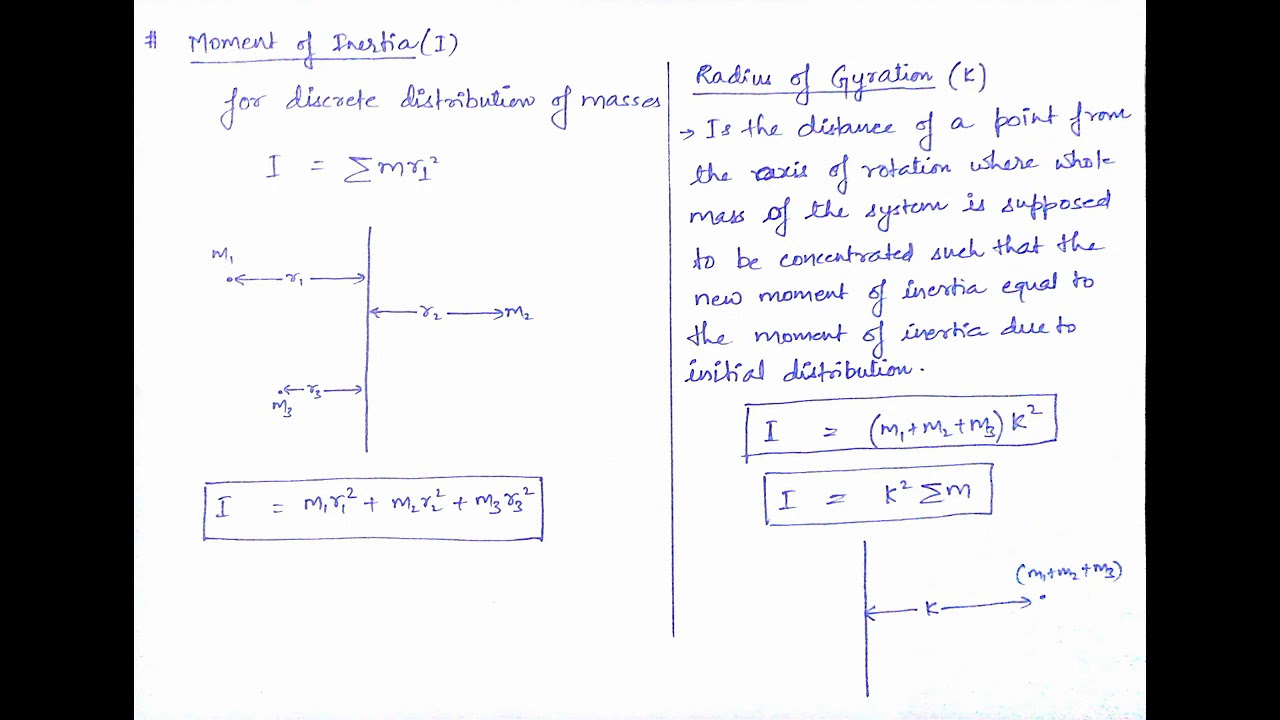 # Moment of Inertia (I)
for discrete distribution of masses
I = ∑mr⊥²
m₁
r₁
r₂ m₂
r₃
m₃
I = m₁r₁² + m₂r₂² + m₃r₃²
Radius of Gyration (K)
→ Is the distance of a point from
the axis of rotation where whole
mass of the system is supposed
to be concentrated such that the
new moment of inertia equal to
the moment of inertia due to
initial distribution.
I = (m₁+m₂+m₃) K²
I = K² ∑m
(m₁+m₂+m₃)
K